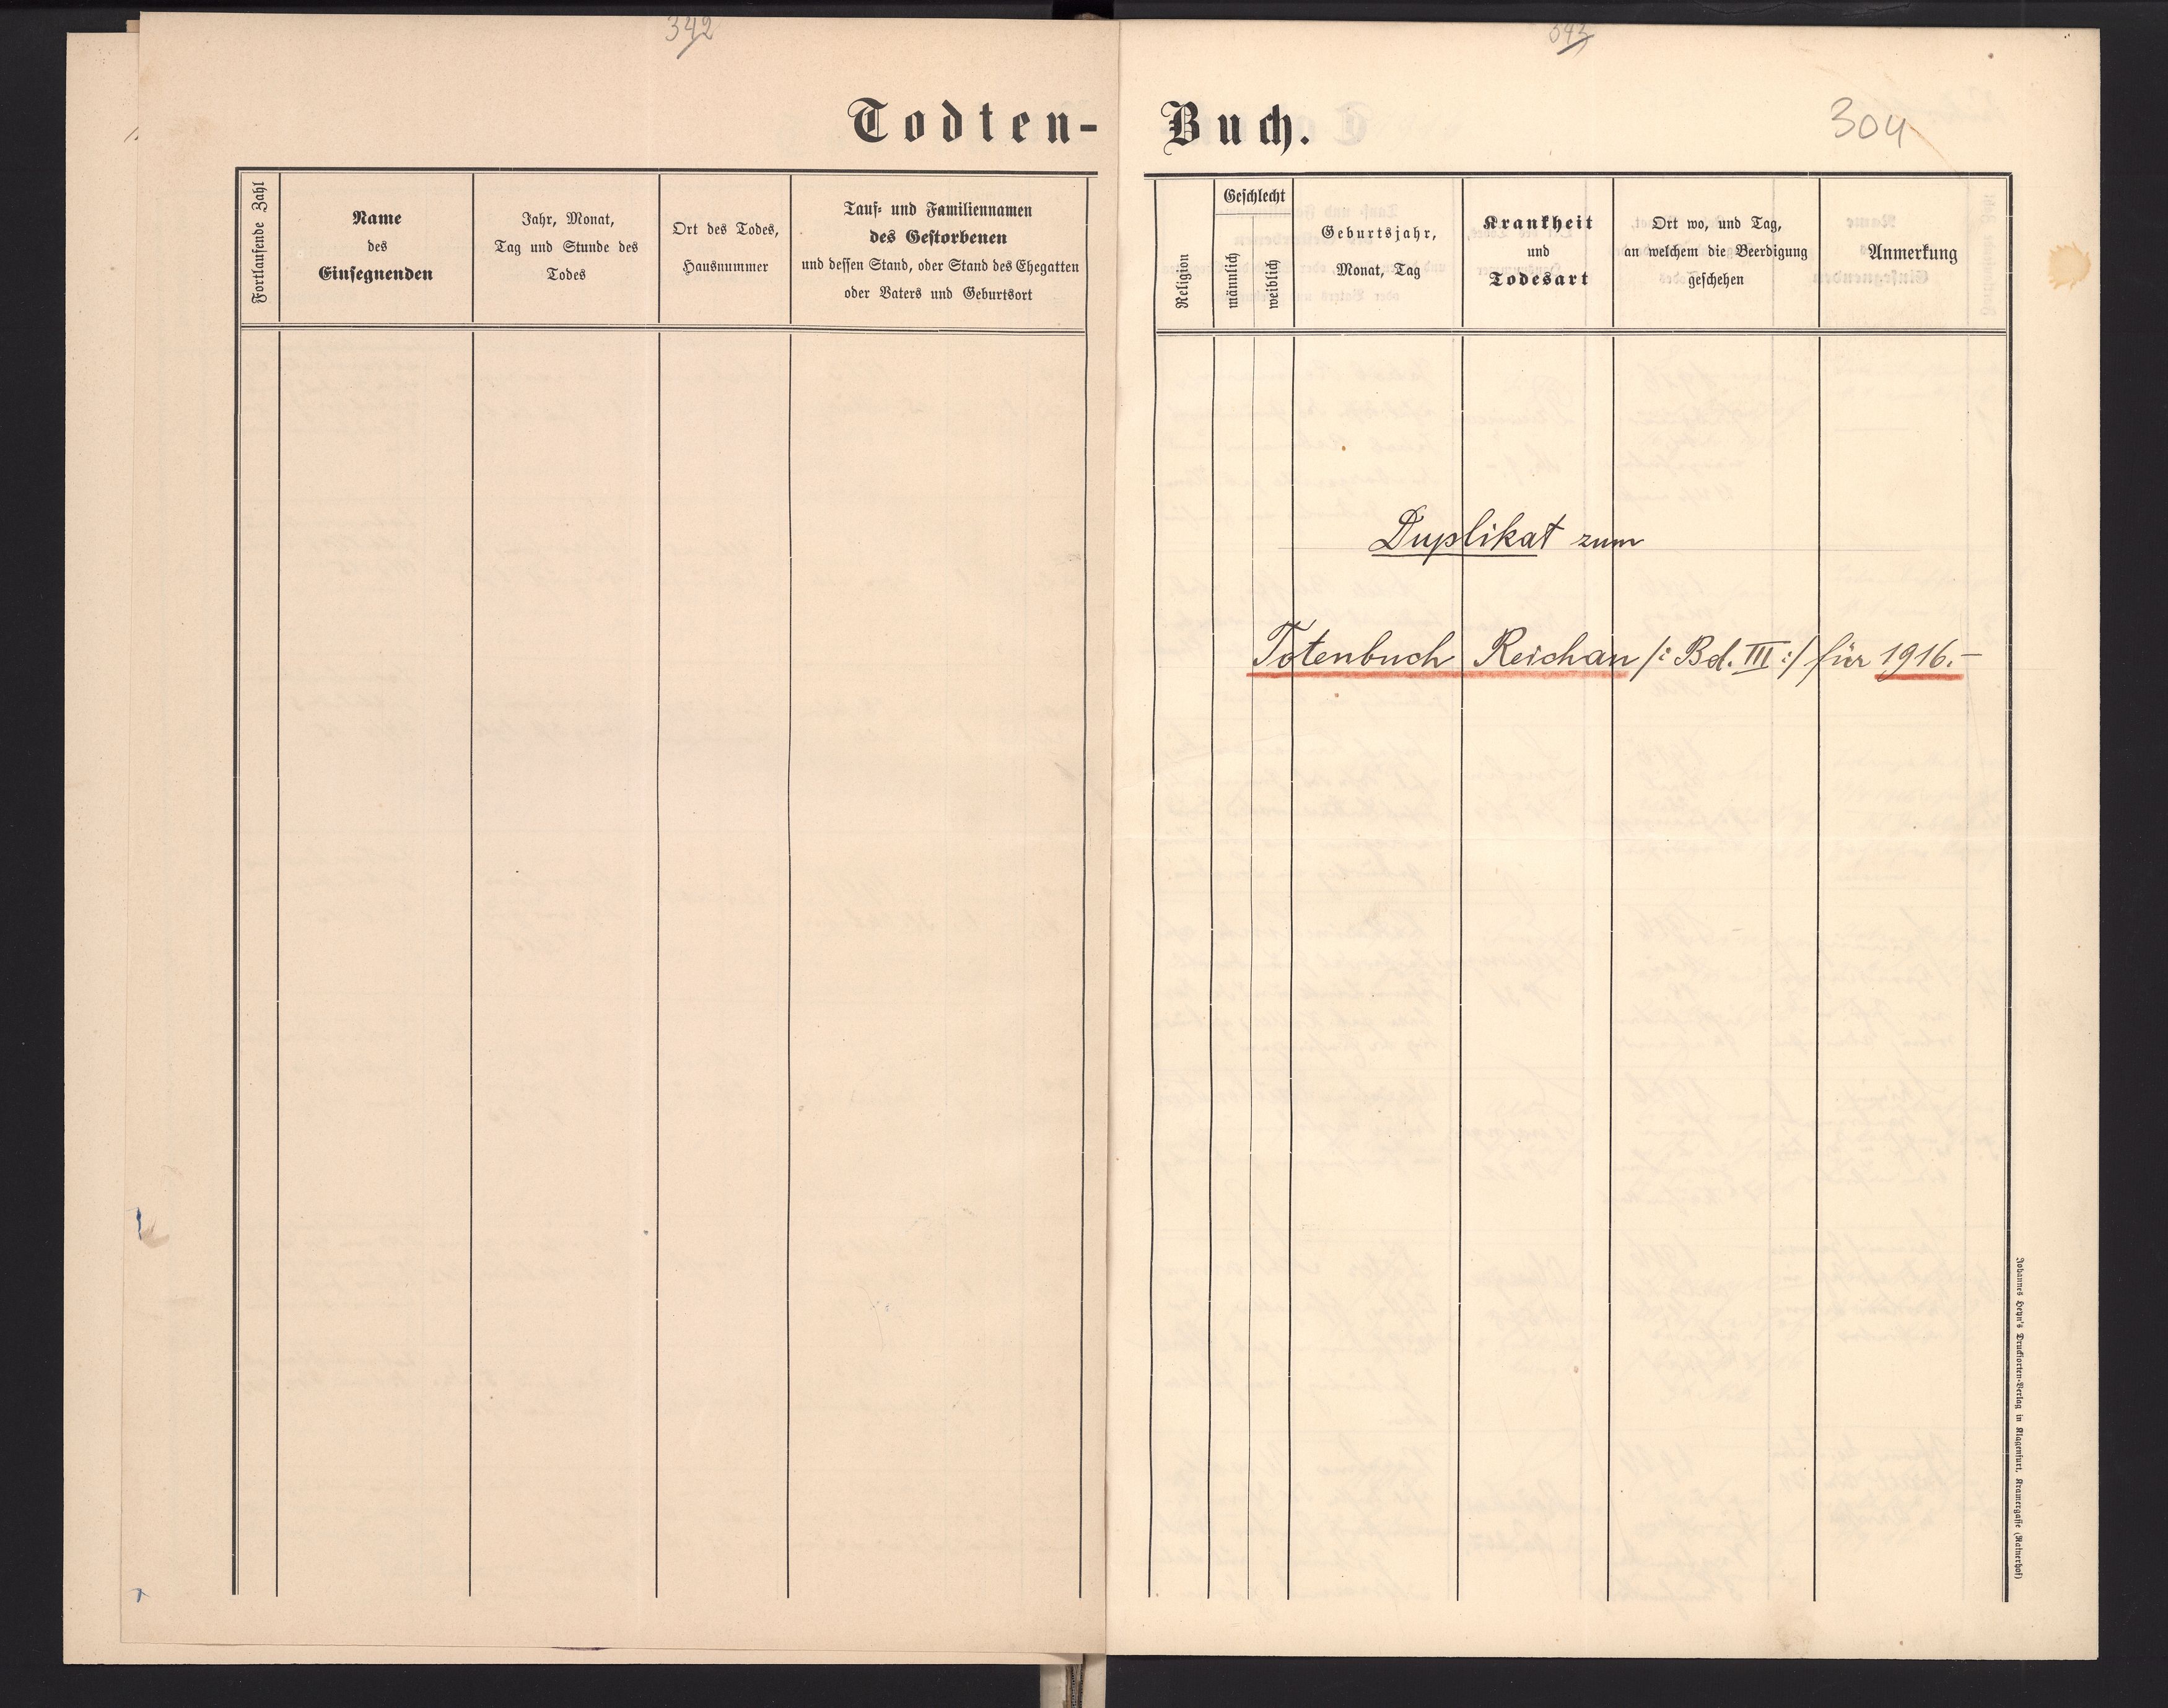 342
343
Todten- Buch.
304
Fortlaufende Zahl
Name
des
Einsegnenden
Jahr, Monat,
Tag und Stunde des
Todes
Ort des Todes,
Hausnummer
Tauf- und Familiennamen
des Gestorbenen
und dessen Stand, oder Stand des Ehegatten
oder Vaters und Geburtsort
Religion
Geschlecht
männlich
weiblich
Geburtsjahr,
Monat, Tag
Krankheit
und
Todesart
Ort wo, und Tag,
an welchem die Beerdigung
geschehen
Anmerkung
Duplikat zum
Totenbuch Reichau /: Bd. III :/ für 1916.-
Johannes Heyn's Drucksorten-Verlag in Klagenfurt, Kramergasse (Rainerhof)